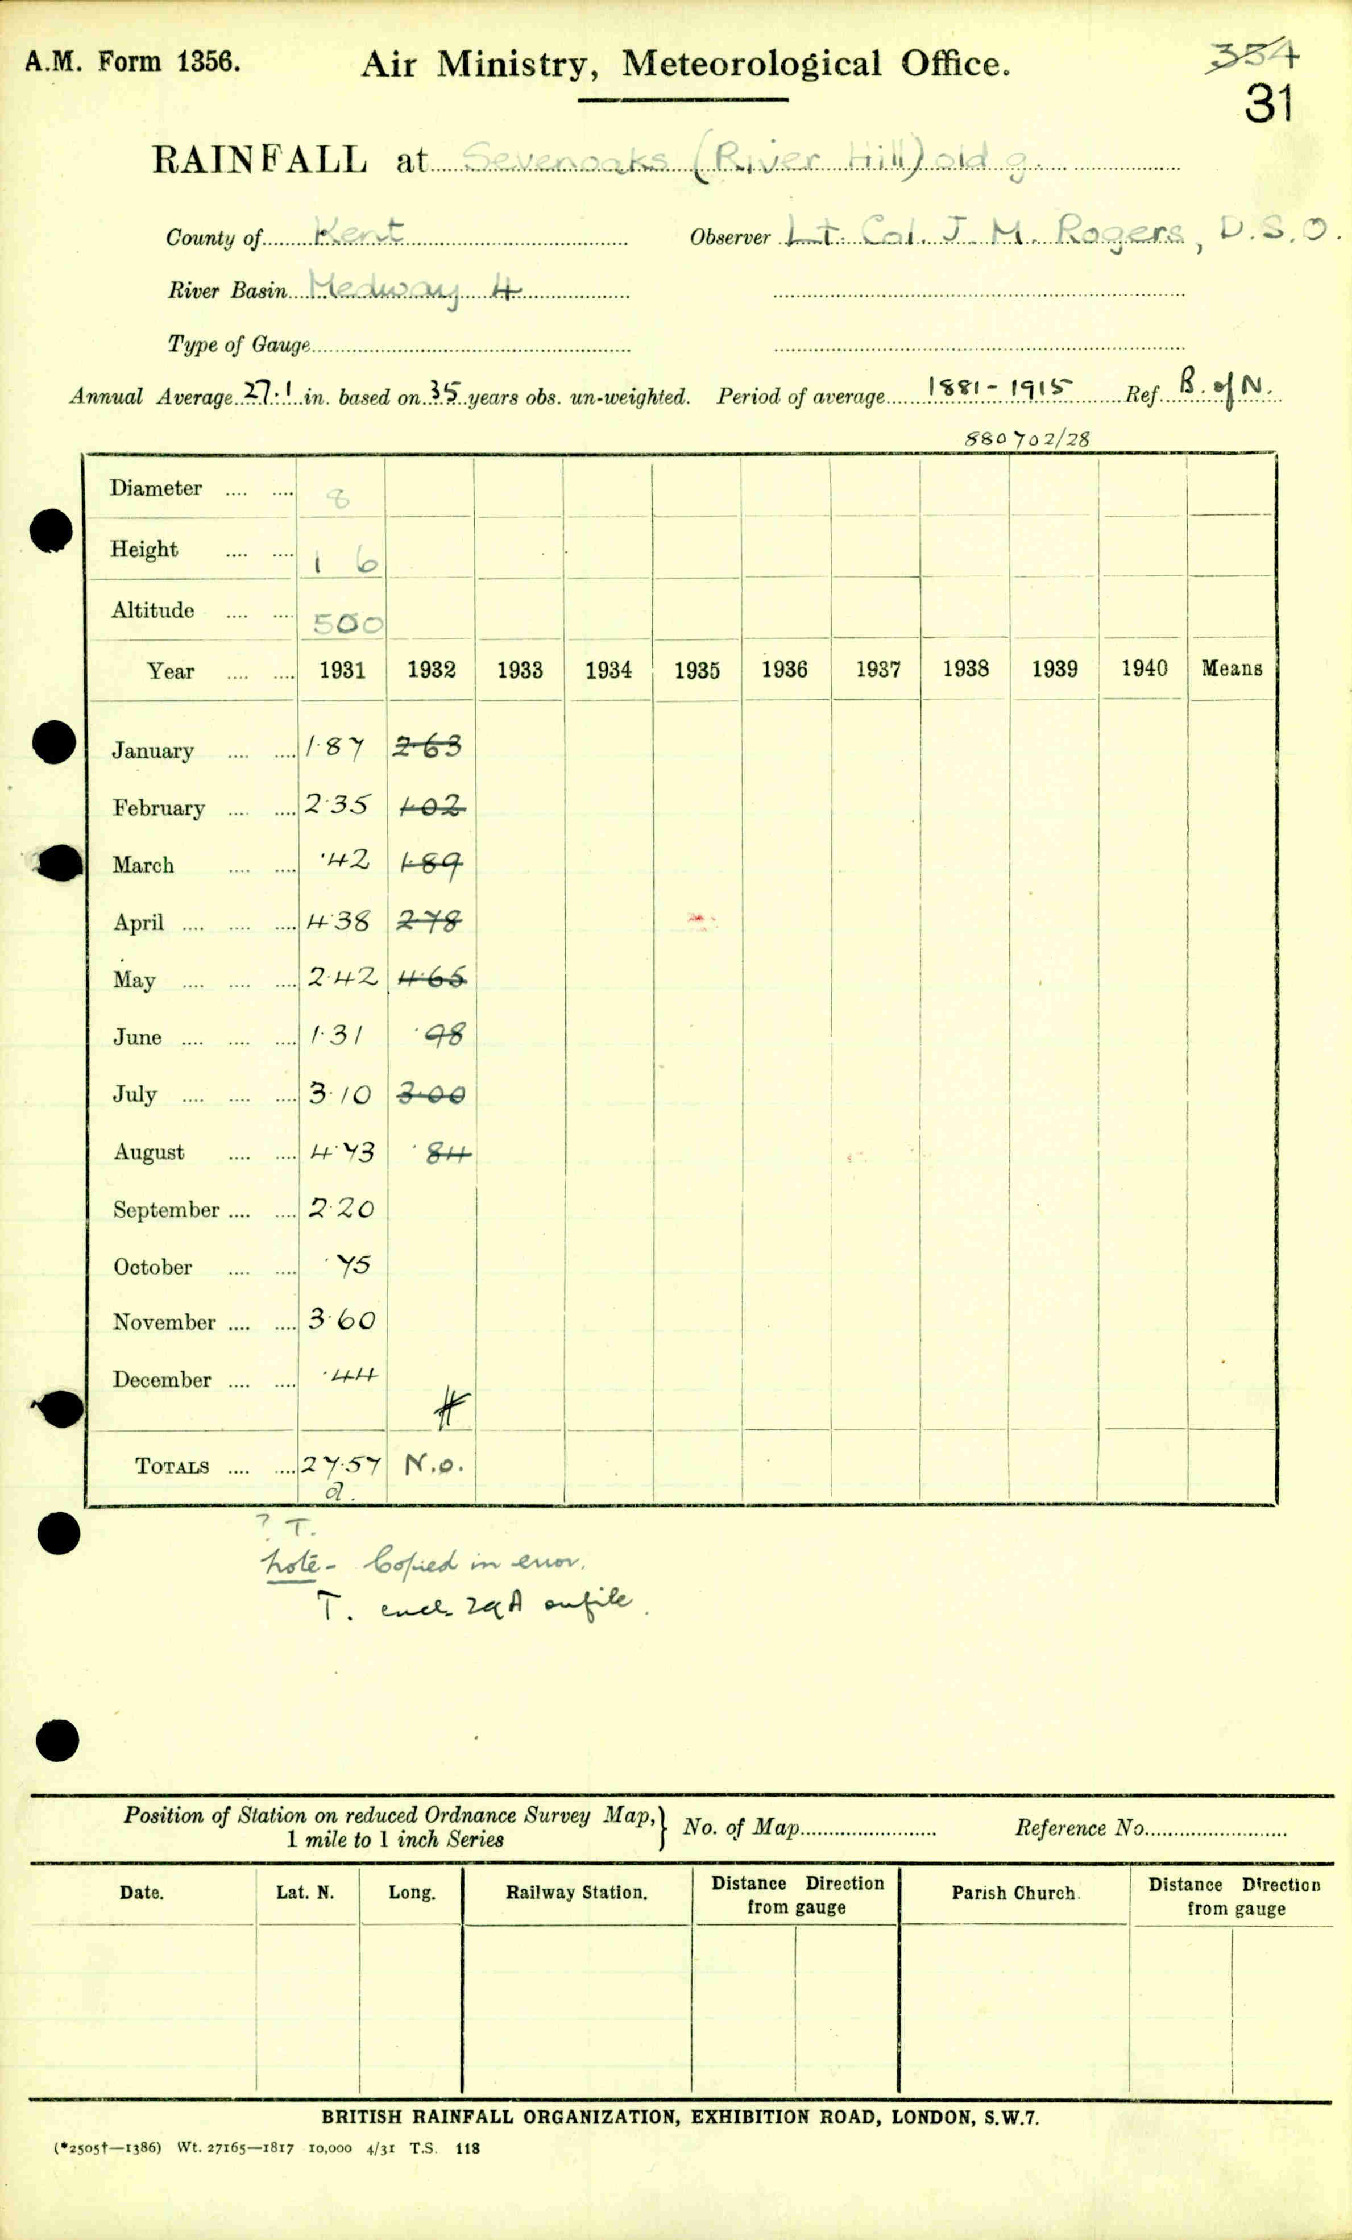 A.M. Form 1356.
Air Ministry, Meteorological Office.
354
31
RAINFALL at Sevenoaks (River Hill) old g.
County of Kent
Observer Lt. Col. J. M. Rogers, D.S.O.
River Basin Medway 4
Type of Gauge
Annual Average 27.1 in. based on 35 years obs. un-weighted. Period of average 1881-1915 Ref. B. of N.
880702/28
Diameter 8
Height 1 6
Altitude 500
Year 1931 1932 1933 1934 1935 1936 1937 1938 1939 1940 Means
January 1.87 2.63
February 2.35 1.02
March .42 1.89
April 4.38 2.78
May 2.42 4.65
June 1.31 .98
July 3.10 3.00
August 4.73 .84
September 2.20
October .75
November 3.60
December .44
TOTALS 27.57 N.o.
a.
? T.
Note - Copied in error.
T. encl. 29A on file.
Position of Station on reduced Ordnance Survey Map,
1 mile to 1 inch Series
No. of Map
Reference No.
Date. Lat. N. Long. Railway Station. Distance Direction from gauge Parish Church. Distance Direction from gauge
BRITISH RAINFALL ORGANIZATION, EXHIBITION ROAD, LONDON, S.W.7.
(*2505†—1386) Wt. 27165—1817 10,000 4/31 T.S. 118